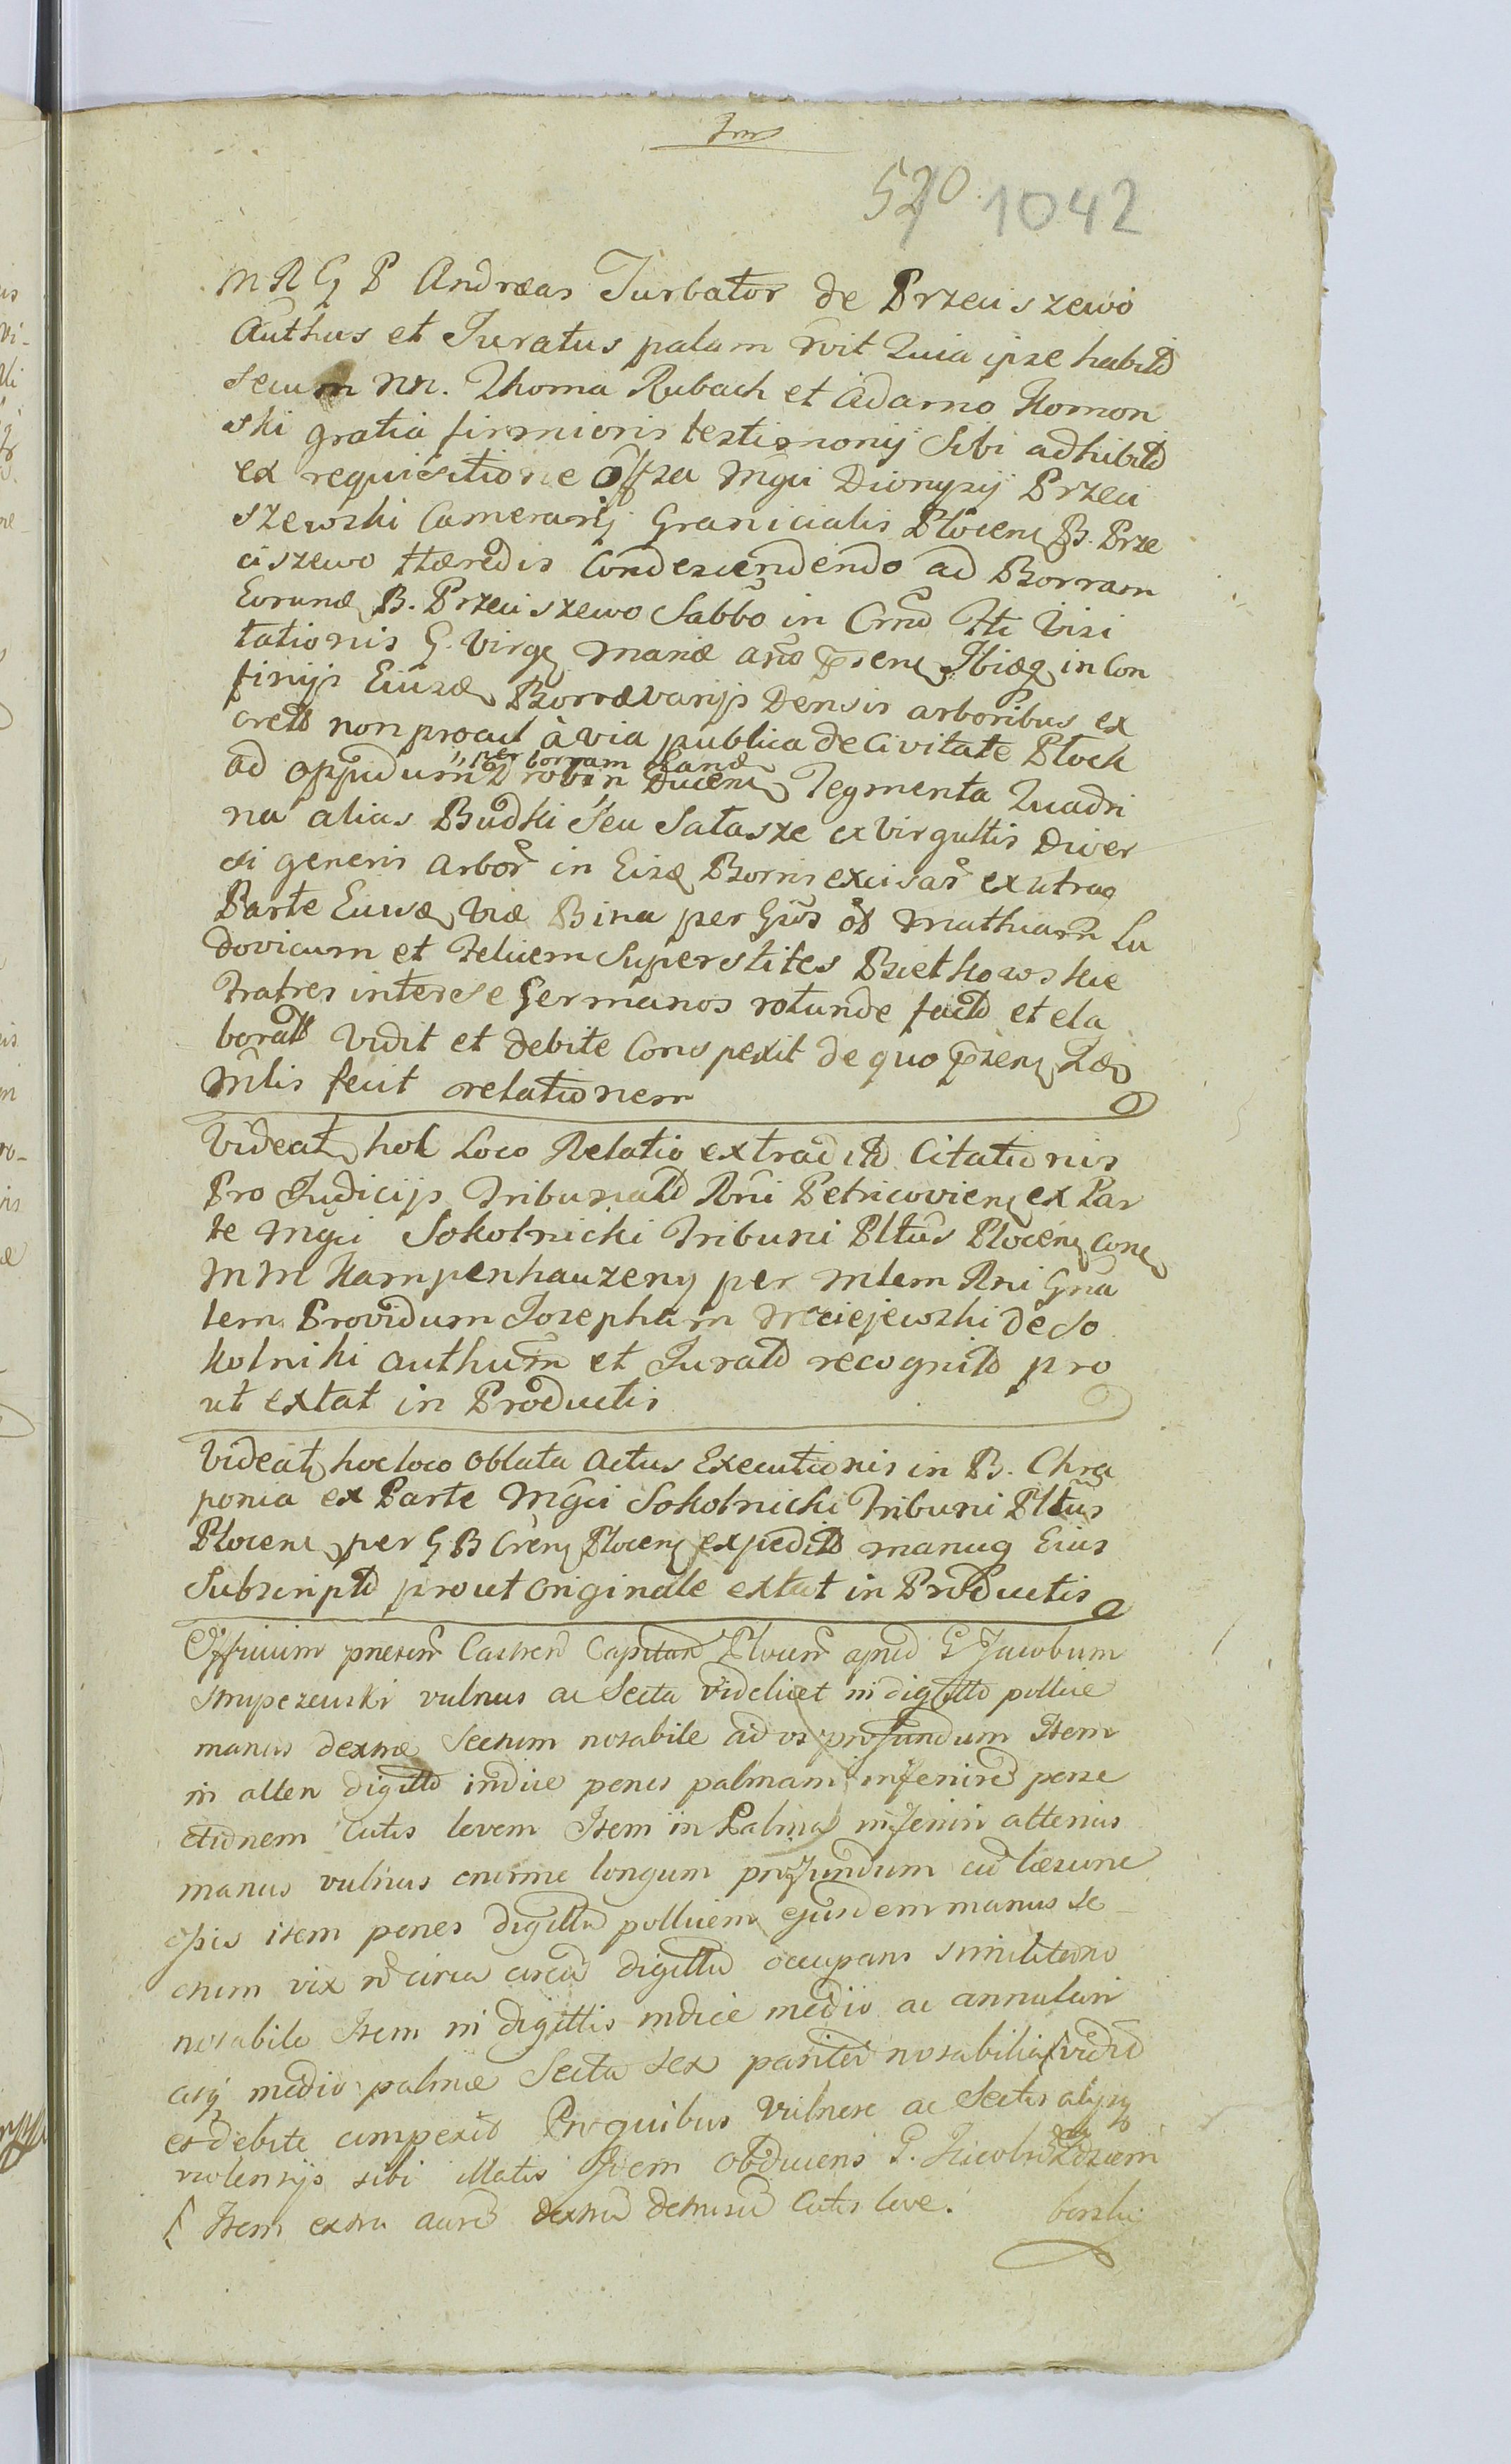 520 1042
M R G P Andreas Turbator de Przeciszewo
Authus et Juratus palam rvit Quia ipse habitis
secum nn. Thoma Rubach et Adamo Komon
ski gratia firmioris testimonij sibi adhibitis
ex requisitione offsa Mgci Dionysij Przeci
szewski Camerarij Granicialis Plocens B. Prze
ciszewo Hæredis Condescendendo ad Borram
Eorund B. Przeciszewo Sabbo in Crno Fti Visi
tationis G. Virgs Mariæ Ano psens Ibiæq in Con
finijs Eiusd Borræ varijs Densis arboribus ex
cretis non procul à via publica de Civitate Plock
ad oppidum Drobin Ducens Tegmenta Quadri
per borram eand
na alias Budki Seu Satasze ex Virgultis Diver
si generis arbor in Eisd Borris excisar ex utraq
Parte Eiusd Viæ Bina per Gsos ot Mathiam Lu
dovicum et Felicem Superstites Bzietkowskie
Fratres inter se Germanos rotunde facta et ela
borat Vidit et debite Conspexit de quo psens Ldo
Mlis fecit relationem
Videat hoc Loco Relatio extradit Citationis
Pro Judicijs Tribunalt Rni Petricoviens ex Par
te Mgci Sokolnicki Tribuni Pltus Plocens Cons
MM Kampenhauzeny per Mlem Rni Gna
lem Providum Josephum Maciejewski de So
kolniki authum et Jurat recognit pro
ut extat in Productis
Videat hoc loco Oblata Actus Executionis in B. Chra
ponia ex Parte Mgci Sokolnicki Tribuni Pltus
Plocens per G B Crens Plocens expedit manuq Eius
Subscript prout Originale extat in Productis
Officium pnesens Castren Capitan Plocens apud G Jacobum
vulnus ac Secta videlicet in digitto pollice
manus dextræ Sectum notabile ad os profundum Item
in altero digitto indice penes palmam inferiore perse
ctionem Cutis levem Item in Palma inferiori alterius
manus vulnus enorme longum profundum cu læsione
ossis item penes digittu pollicem ejusdem manus se
ctum vix n circa circu digittu occupans similiterno
notabile Item in digittis indice medio ac annulari
acq medio palmæ Secta sex pariter notabilia vidit
et debite conspexit Pro quibus Vulnere ac Sectis alijsq
violensijs sibi illatis Idem obducens G.
Item extra aure dextra detrusu Cutis leve. borski